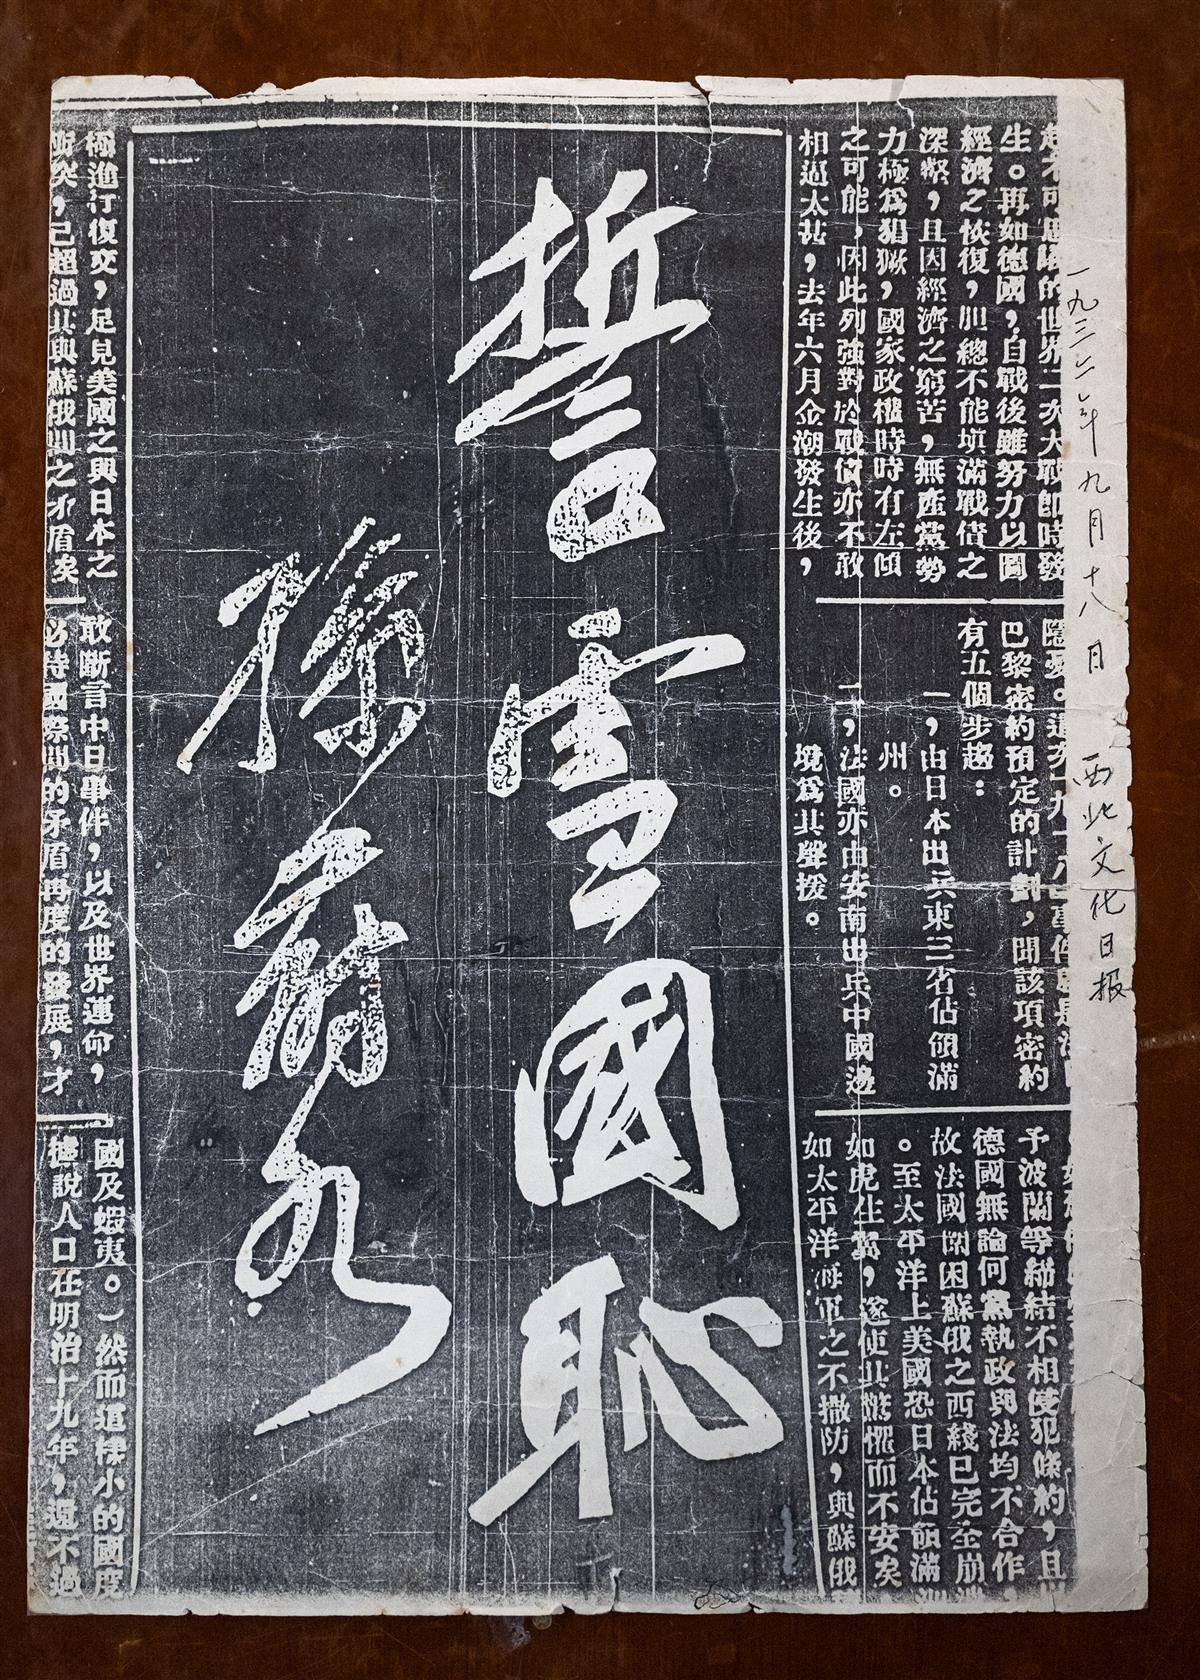 一九三二年九月十八日 西北文化日报
生。再如德國，自戰後雖努力以圖
經濟之恢復，但總不能填滿戰債之
深壑，且因經濟之窮苦，無產黨勢
力極爲猖獗，國家政權時時有左傾
之可能，因此列強對於戰債亦不敢
相逼太甚，去年六月金潮發生後，
巴黎密約預定的計劃，聞該項密約
有五個步趨：
一，由日本出兵東三省佔領滿
州。
二，法國亦由安南出兵中國邊
境爲其聲援。
予波蘭等締結不相侵犯條約，且
德國無論何黨執政與法均不合作，
故法國圍困蘇俄之西綫已完全崩潰
。至太平洋上美國恐日本佔領滿洲
如虎生翼，遂使其驚懼而不安矣
如太平洋海軍之不撤防，與蘇俄
誓雪國恥
孫蔚如
極進行復交，足見美國之與日本之
衝突，已超過其與蘇俄間之矛盾矣
敢斷言中日事件，以及世界運命，
必待國際間的矛盾再度的發展，才
國及蝦夷。）然而這樣小的國度
據說人口在明治十九年，還不過